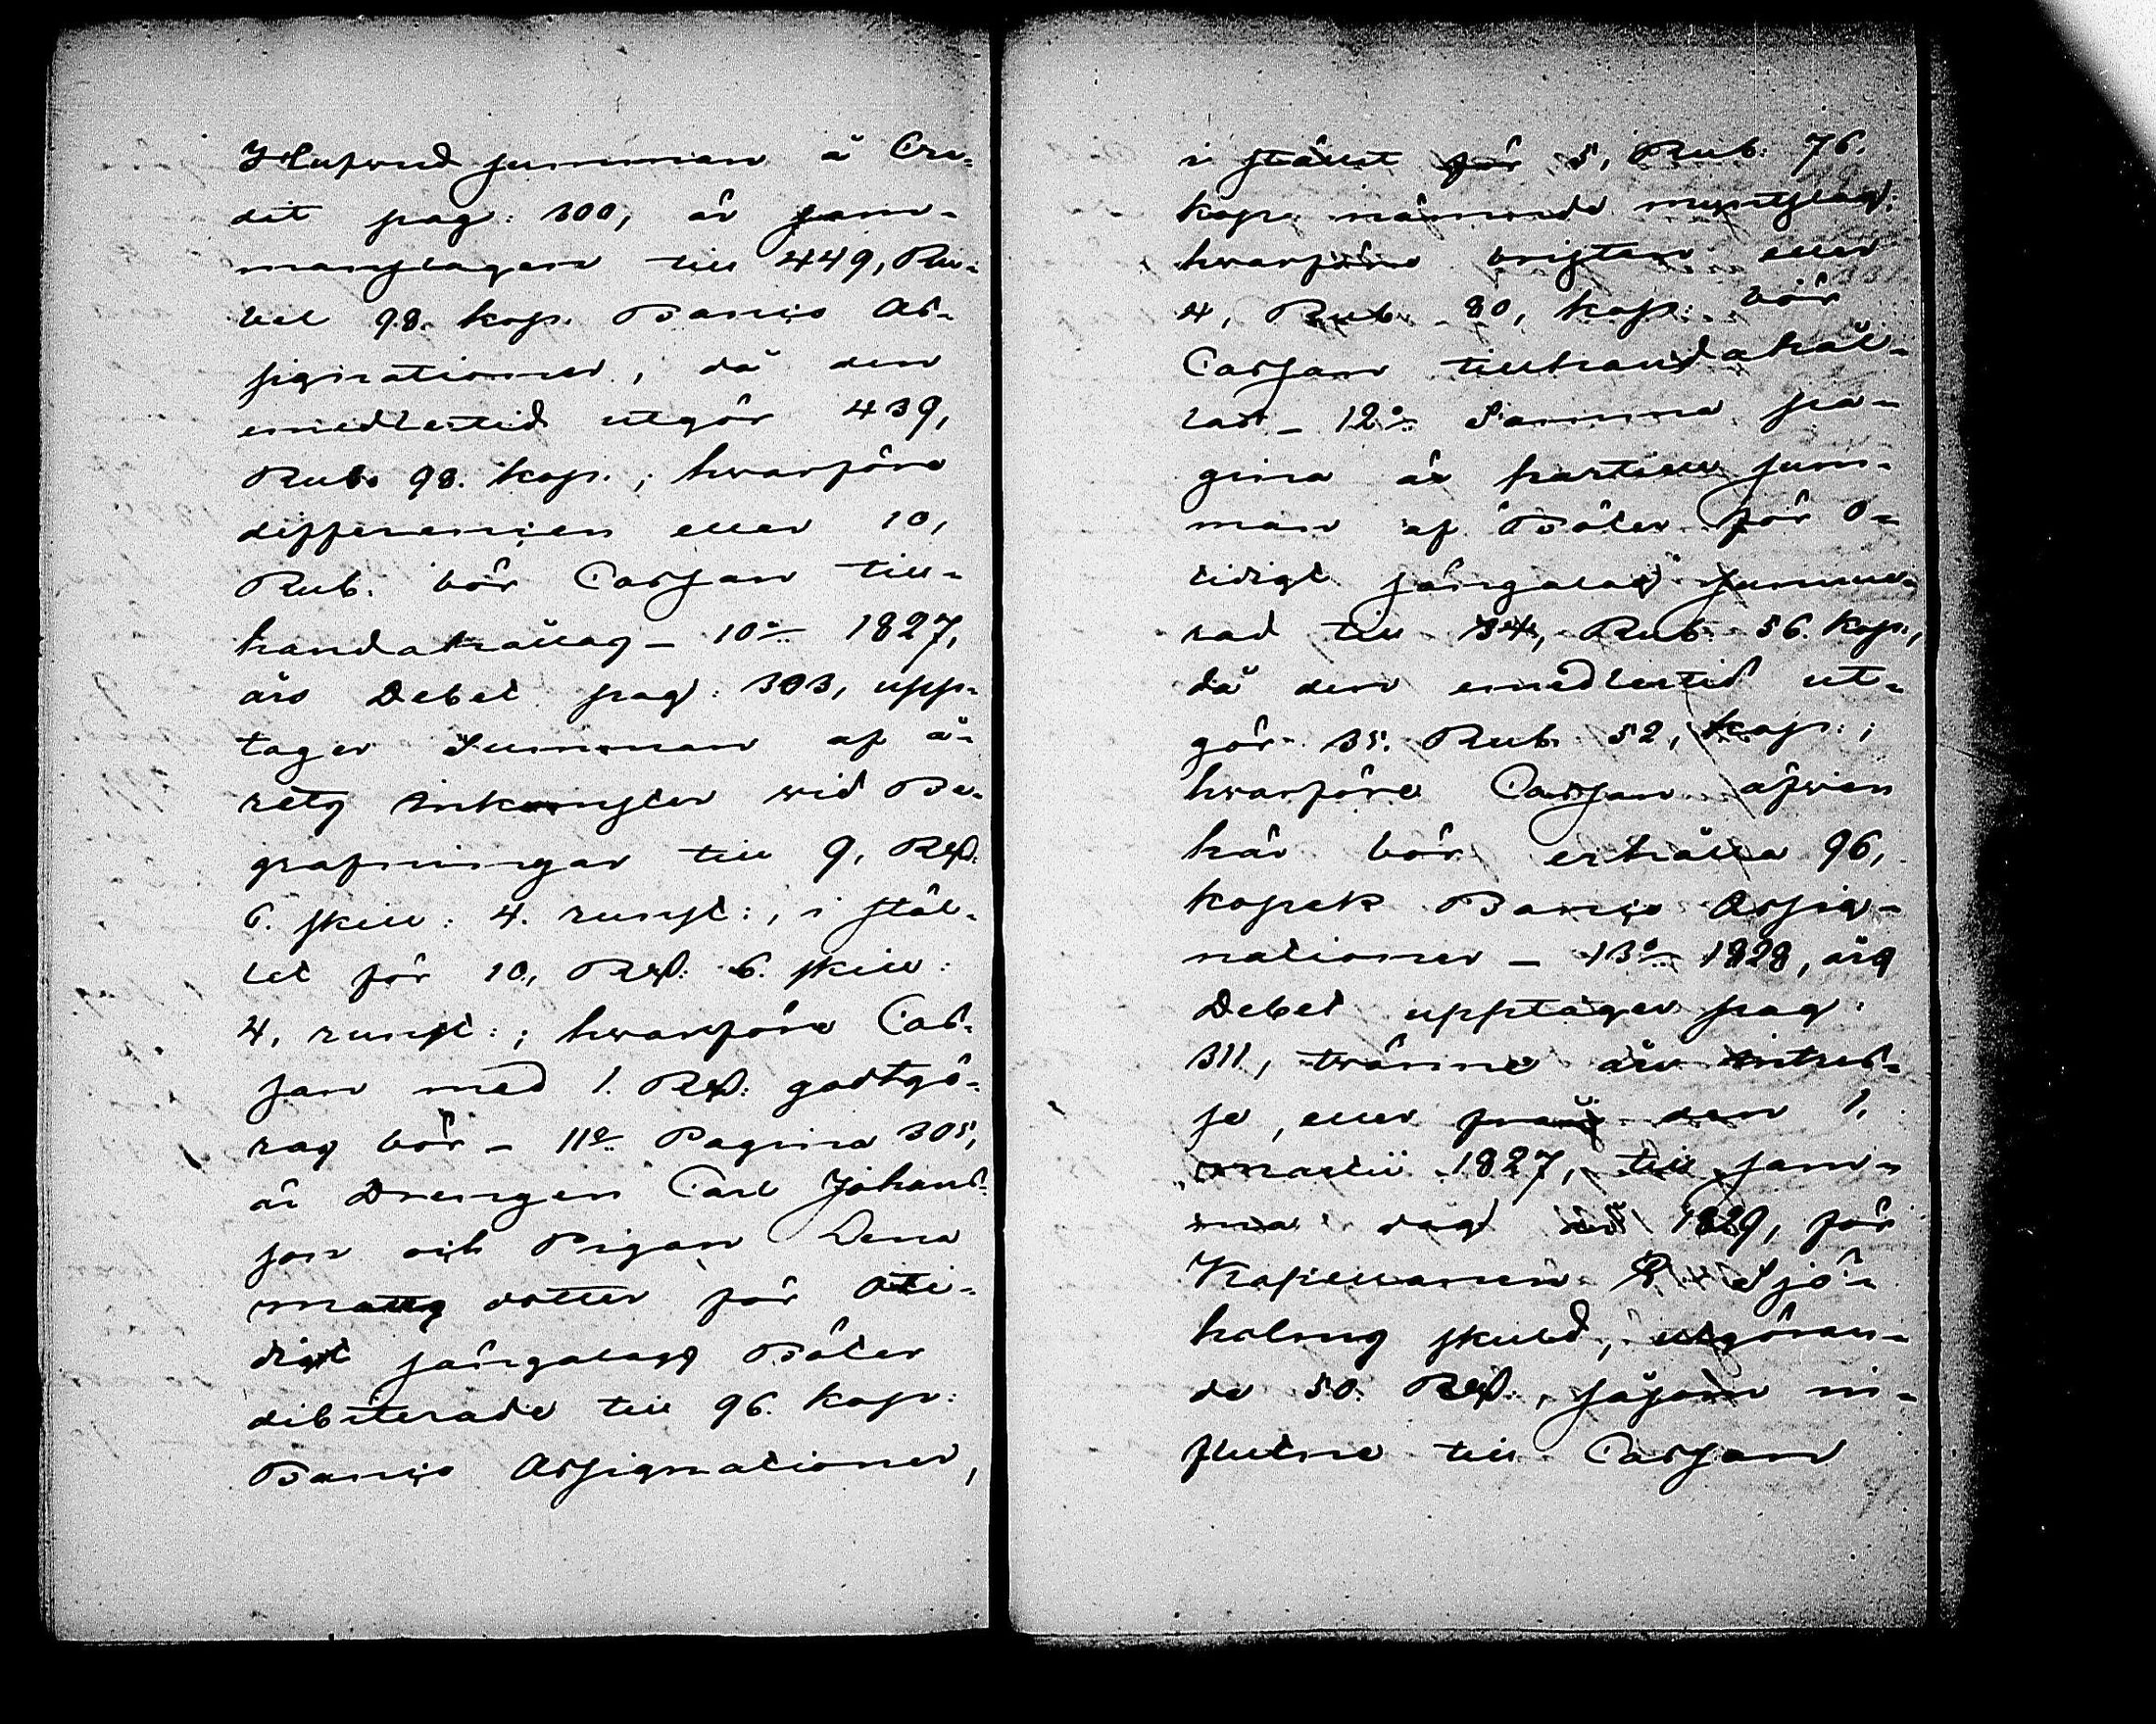 Hufwud summan å Cre-
dit pag: 300, är sam-
manslagen till 449, Ru-
bel 98. kop. Banco As-
signationer, då den
emedlertid utgör 439,
Rub. 98. kop.; hwarföre
differencen eller 10,
Rub. bör Cassan till-
handahållas – 10:o 1827,
års Debet pag: 303, upp-
tager Summan af å-
rets inkomster wid Be-
grafningar till 9, Rd:
6. skill: 4. runst:, i stäl-
let för 10, Rd: 6. skill:
4, runst:; hwarföre Cas-
san med 1. Rd: godtgö-
ras bör – 11:o Pagina 305,
är Drengen Carl Johans-
son och Pigan Lena
Matts dotter för Oti-
digt sängalag Böter
debiterade till 96. kop:
Banco Assignationer,
i stället för 5, Rub: 76.
kop: nämnde myntslag;
hwarföre bristen eller
4, Rub. 80, kop: bör
Cassan tillhandahål-
las – 12:o Samma pa-
gina är partiell sum-
man af Böter för o-
tidigt sängalag summe-
rad till 34, Rub. 56. kop,
då den emedlertid ut-
gör 35. Rub 52, kop:;
hwarföre Cassan äfwen
här bör erhålla 96,
kopek Banco Assig-
nationer – 13:o 1828, års
Debet upptager pag:
311, twänne års intres-
se, eller från den 1.
Martii 1827, till sam-
ma dag 1829, för
Kapellanen Sjö-
holms skuld, utgöran-
de 50. Rd:, såsom in-
flutne till Cassan